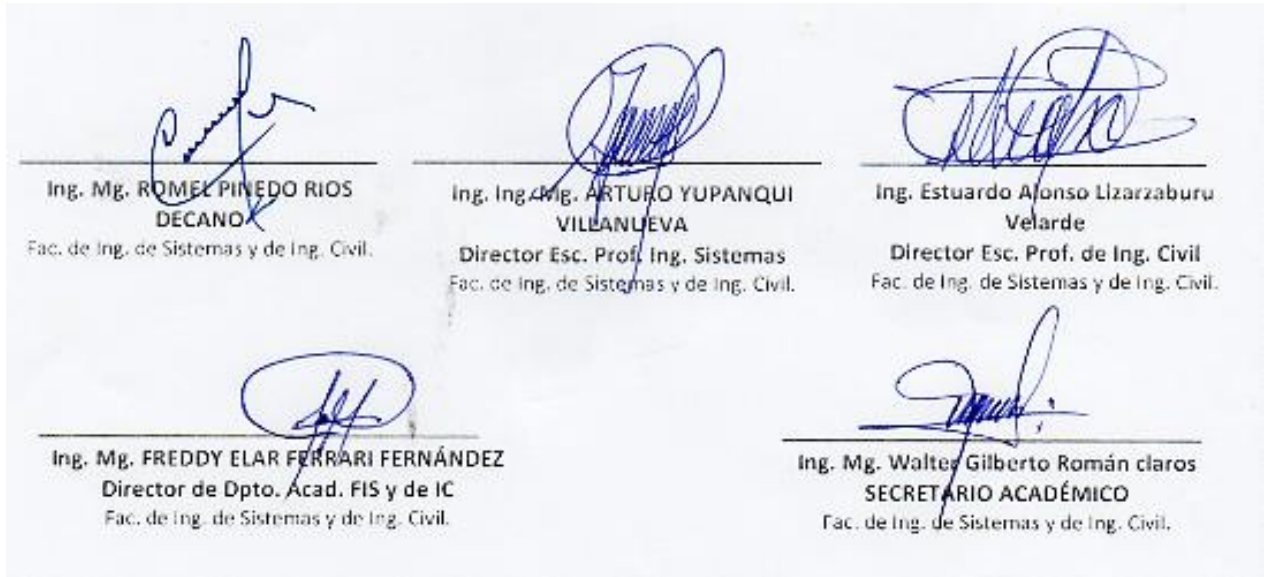 Ing. Mg. ROMEL PINEDO RIOS
DECANO
Fac. de Ing. de Sistemas y de Ing. Civil.
Ing. Ing. Mg. ARTURO YUPANQUI
VILLANUEVA
Director Esc. Prof. Ing. Sistemas
Fac. de Ing. de Sistemas y de Ing. Civil.
Ing. Estuardo Alonso Lizarzaburu
Velarde
Director Esc. Prof. de Ing. Civil
Fac. de Ing. de Sistemas y de Ing. Civil.
Ing. Mg. FREDDY ELAR FERRARI FERNÁNDEZ
Director de Dpto. Acad. FIS y de IC
Fac. de Ing. de Sistemas y de Ing. Civil.
Ing. Mg. Walter Gilberto Román claros
SECRETARIO ACADÉMICO
Fac. de Ing. de Sistemas y de Ing. Civil.